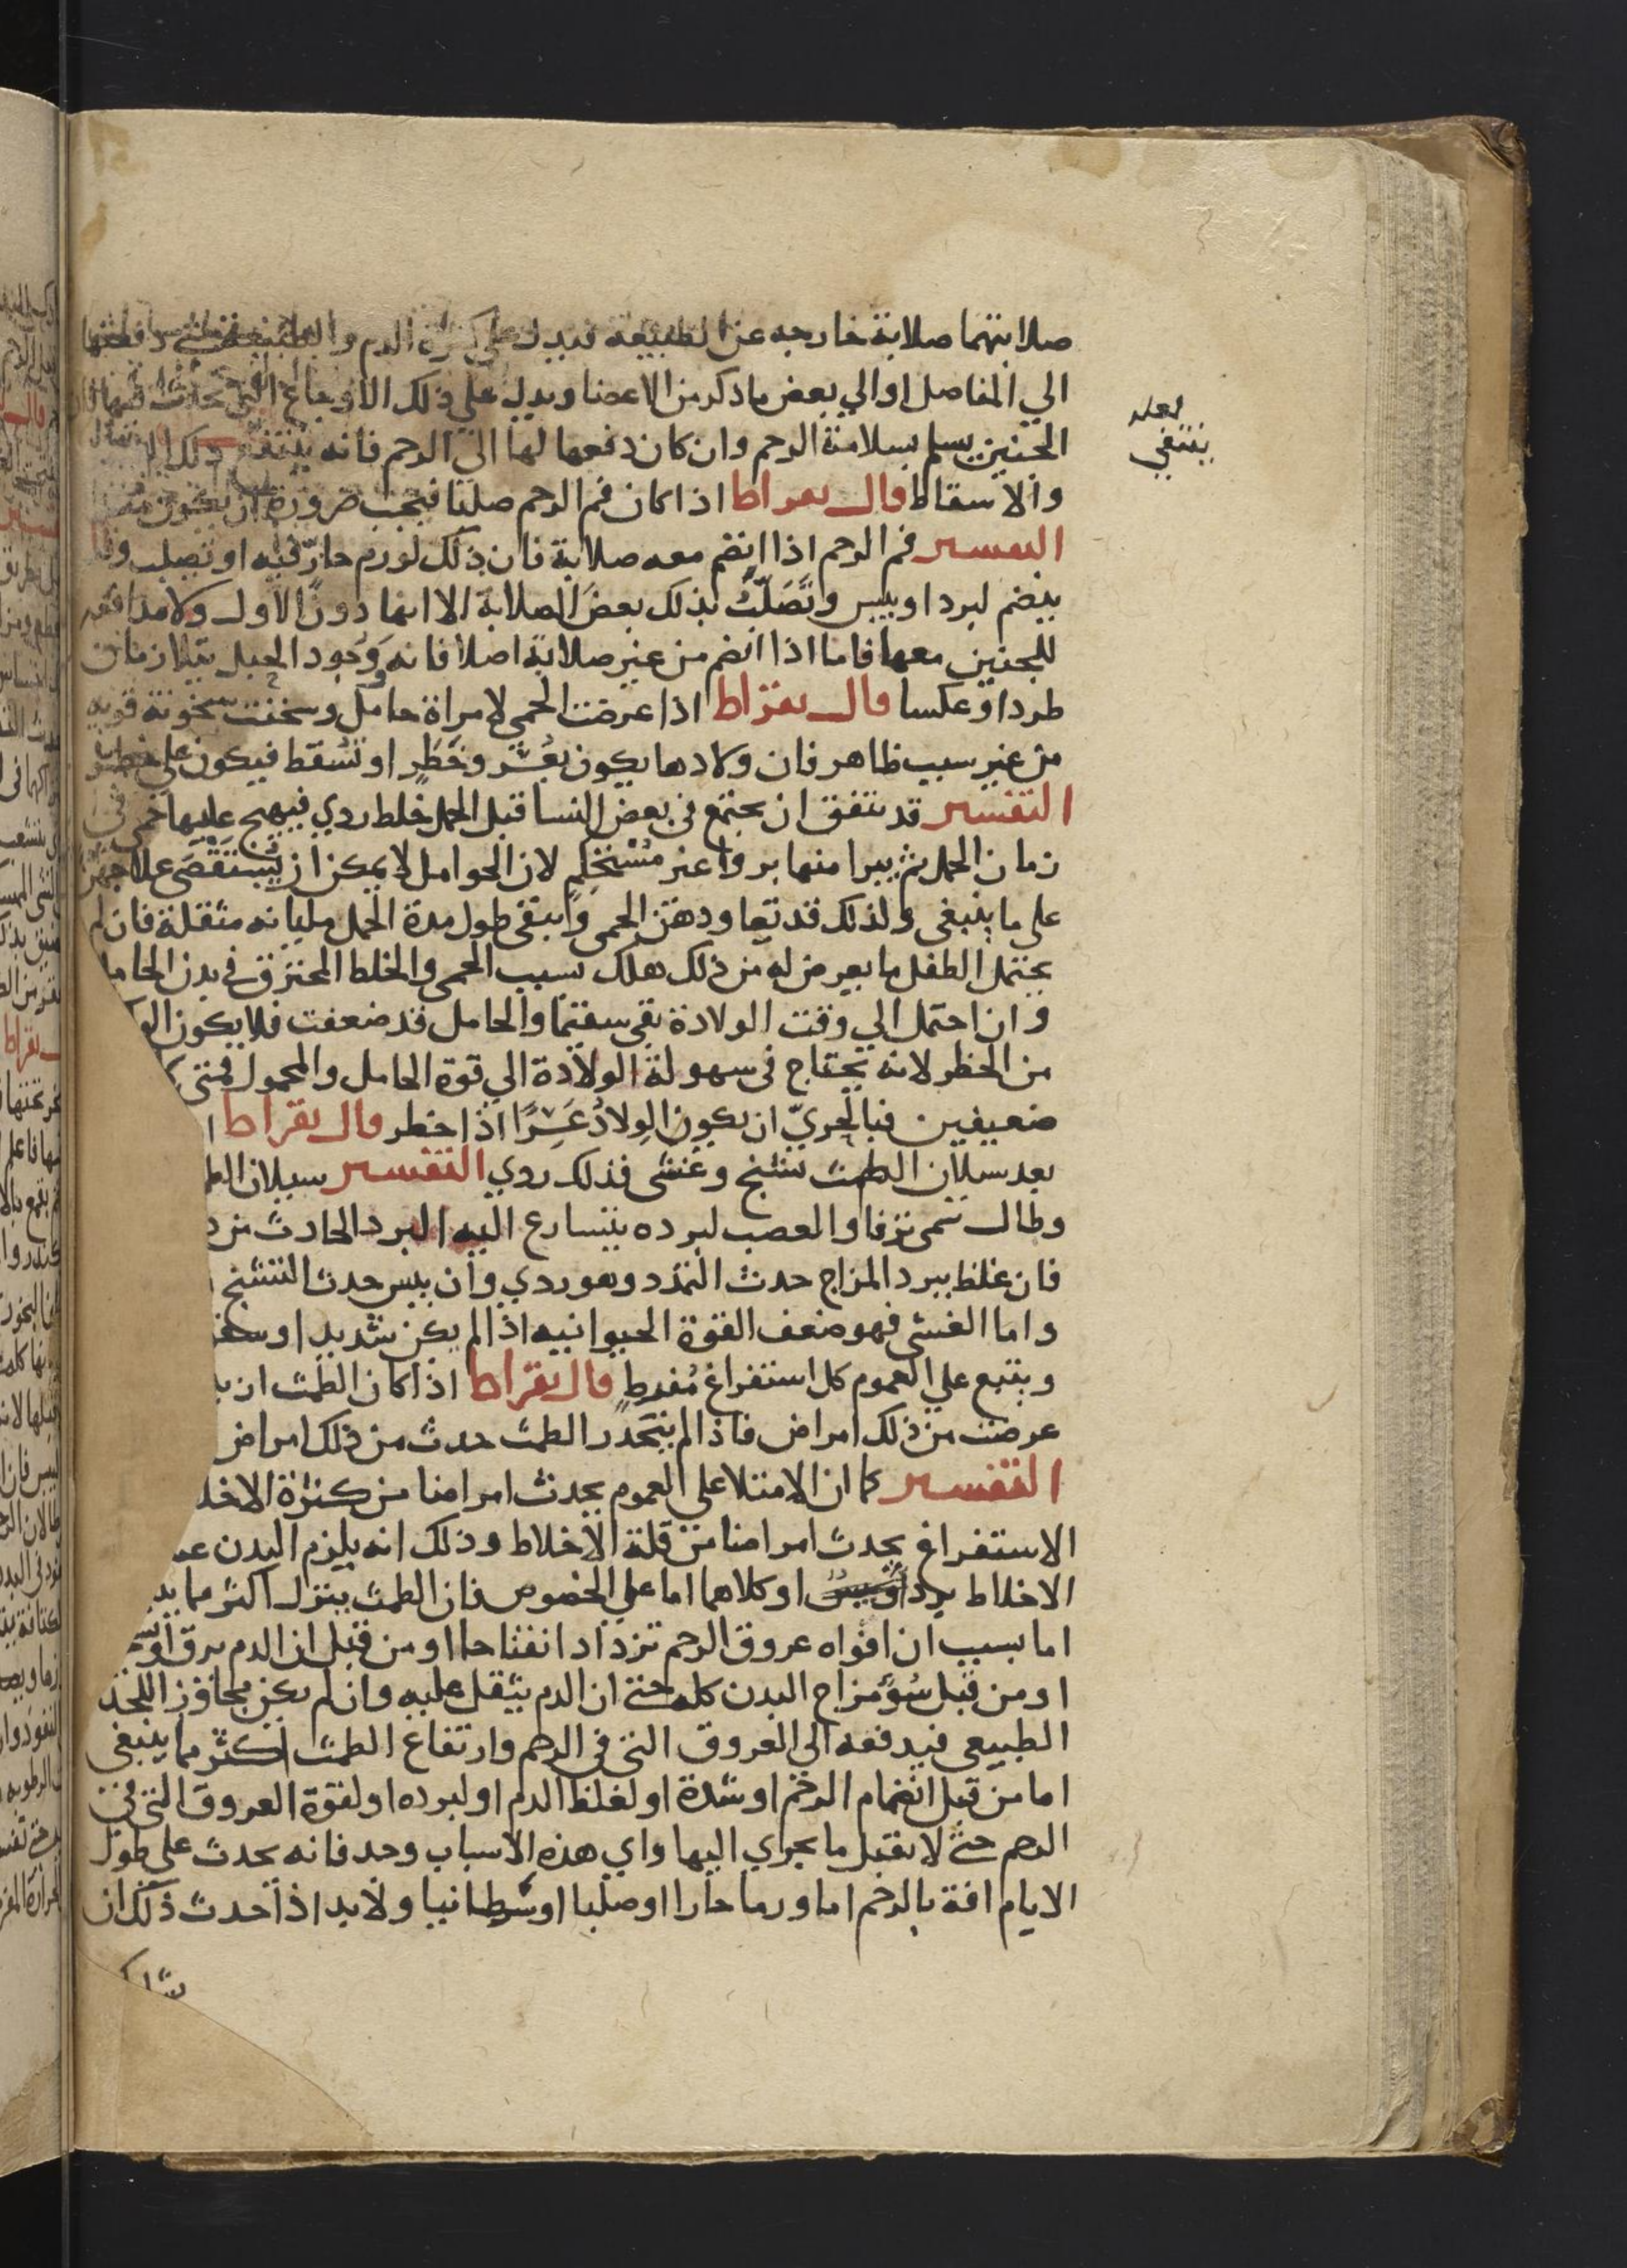 صلابتهما صلابة خارجه عن الطبيعة فيدل علي كثرة الدم والطبيعة دفعتها
الي المفاصل او الي بعض ما ذكر من الاعضا ويدل علي ذلك الاوجاع التي تحدث فيها فان
الجنين يسلم بسلامة الرحم وان كان دفعها لها الي الرحم فانه ينتفي ذلك
لعله
ينتفي
والاسقاط قال بقراط اذا كان فم الرحم صلبا فيجب ضرورة ان يكون منضما
التفسير فم الرحم اذا انضم معه صلابة فان ذلك لورم حارّ فيه او تصلب وقد
ينضم لبرد او يبس وتَصَلّبُ بذلك بعض الصلابة الا انها دون الاول ولا مدافعه
للجنين معها فاما اذا انضم من غير صلابة اصلا فانه وَوُجود الحبل يتلازمان
طردا وعكسا قال بقراط اذا عرضت الحمي لامراة حامل وسخنت سخونة قويه
من غير سبب ظاهر فان ولادها يكون بعُسْر وخَطَرٍ او تسُقط فيكون علي خطر
التفسير قد يتفق ان يجتمع في بعض النسا قبل الحمل خلط ردي فيهيج عليها حمي في
زمان الحمل ثم يبرا منها بروا غير مُسْتحكِمٍ لان الحوامل لا يمكن ان يُستَقْصَي علاجهن
علي ما ينبغي ولذلك قد تعاودهن الحمي وتبقي طول مدة الحمل مليانه مثقلة فان لم
يحتمل الطفل ما يعرض له من ذلك هلك بسبب الحمي والخلط المحترق في بدن الحامل
وان احتمل الي وقت الولادة بقي سقيما والحامل قد ضعفت فلا يكون
من الخطر لانه يحتاج في سهولة الولادة الي قوة الحامل والمحمول فمتي
ضعيفين فبالحريّ ان يكون الوِلادُ عَسِرًا اذا خطر قال بقراط ا
بعد سيلان الطمث تشنج وغشي فذلك ردي التفسير سيلان
وطال سمي نزفا والعصب لبرده يتسارع اليه البرد الحادث من
فان غلظ ببرد المزاج حدث التمدد وهو ردي وان يبس حدث التشنج
واما الغشي فهو ضعف القوة الحيوانيه اذا لم يكن شديد او
ويتبع علي العموم كل استفراغ مُفرطٍ قال بقراط اذا كان الطمث ازيد
عرضت من ذلك امراض فاذا لم يَنحَدر الطمث حدث من ذلك امراض
التفسير كما ان الامتلا علي العموم يحدث امراضا من كثرة
الاستفراغ يحدث امراضا من قلة الاخلاط وذلك انه يلزم البدن
الاخلاط برد او يبس او كلاهما اما علي الخصوص فان الطمث ينزل اكثر مما
اما بسبب ان افواه عروق الرحم تزداد انفتاحا او من قبل ان الدم يرق
او من قبل سُوْ مزاج البدن كله حتي ان الدم يثقل عليه وان لم يكن مجاوز اللحد
الطبيعي فيدفعه الي العروق التي في الرحم وارتفاع الطمث اكثر مما ينبغي
اما من قبل انضمام الرحم او شدة او لغلظ الدم او لبرده او لقوة العروق التي في
الرحم حتي لا يقبل ما يجري اليها واي هذه الاسباب وحد فانه يحدث علي طول
الايام افة بالرحم اما ورما حارا او صلبا او سرطانيا ولا بد اذا حدث ذلك ان